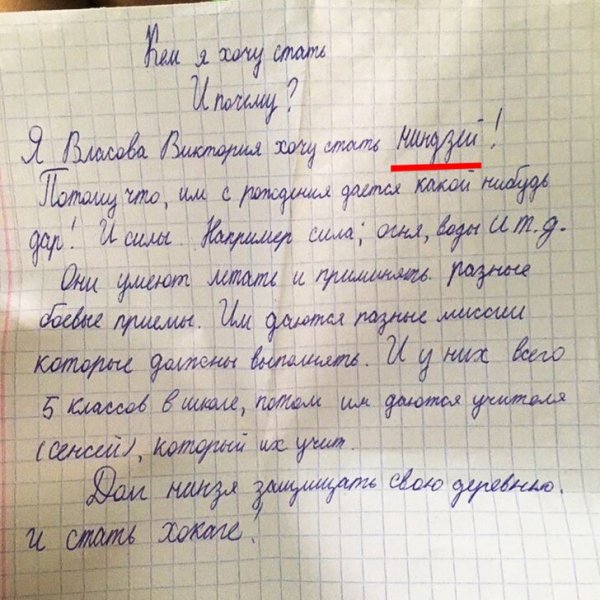 Кем я хочу стать
И почему?
Я Власова Виктория хочу стать ниндзей!
Потому что, им с рождения дается какой нибудь
дар! И силы. Например сила; огня, воды и т.д.
Они умеют летать и приминять разные
боевые приемы. Им даются разные миссии
которые должны выполнять. И у них всего
5 классов в школе, потом им даются учителя
(сенсей), который их учит.
Долг нинзя защищать свою деревню.
и стать хокаге!